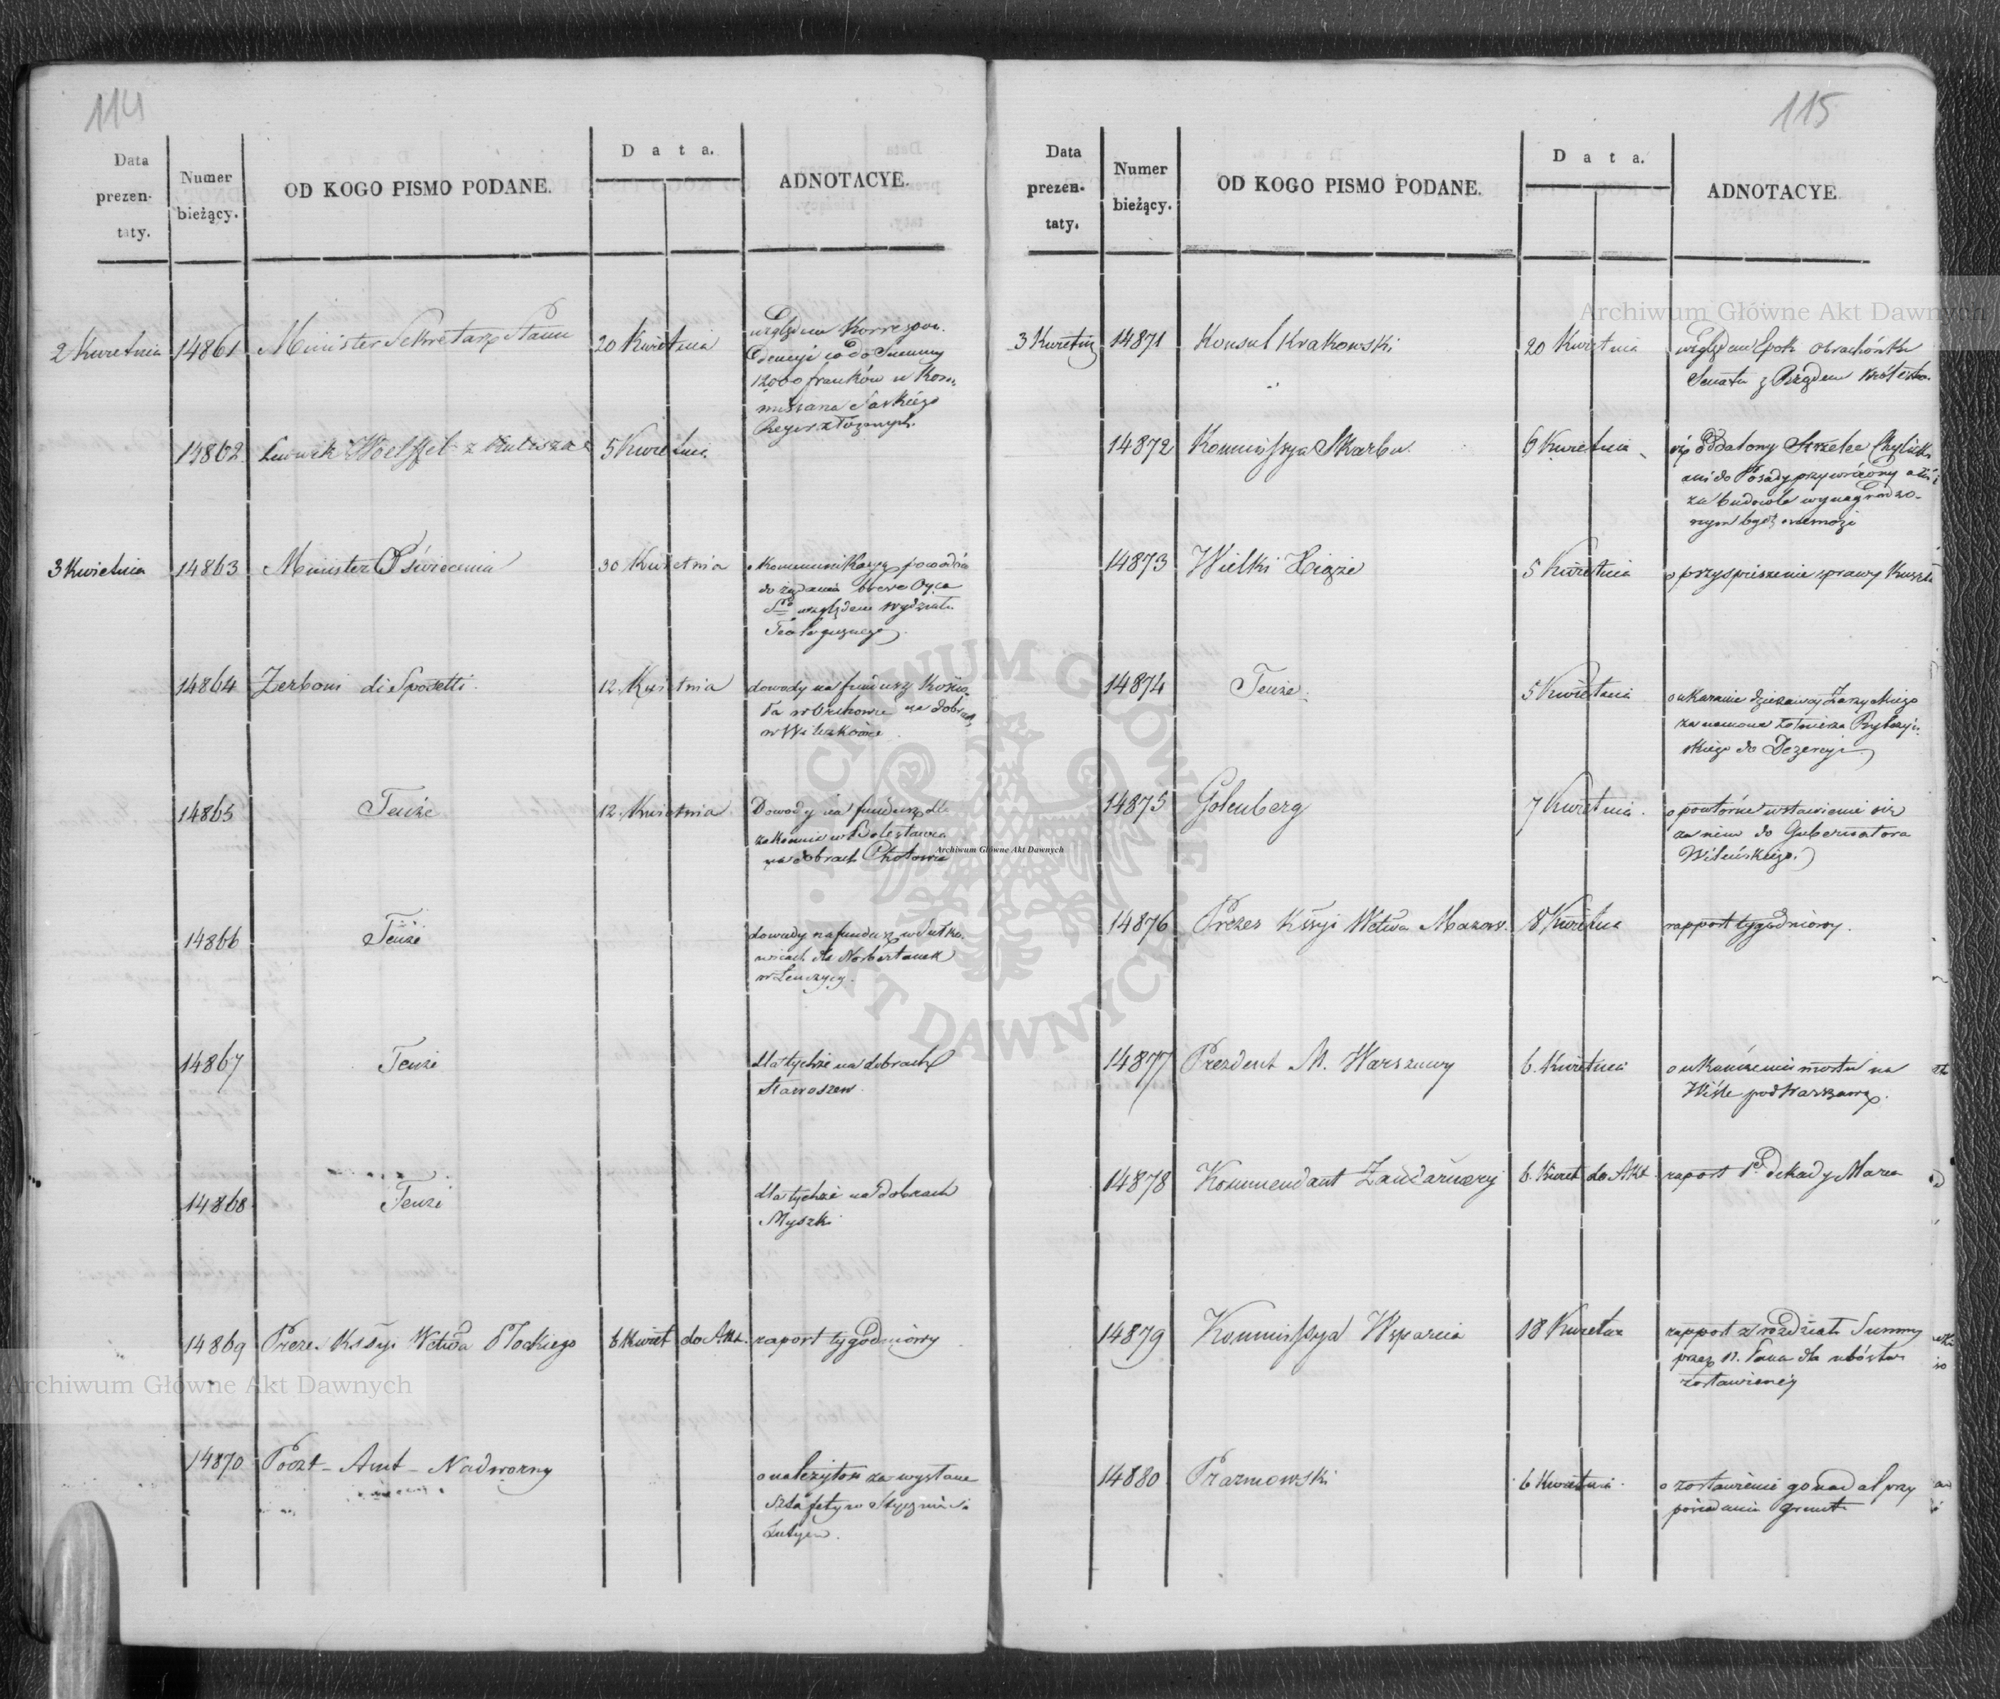 114
Data prezen- taty.
Numer bieżący.
OD KOGO PISMO PODANE.
Data.
ADNOTACYE.
2 Kwietnia 14861 Minister Sekretarz Stanu 20 Kwietnia względem Korrespon-
dencyi co do Summy
12000 franków u Kom-
missarza Saskiego
złożonych
14862 Ludwik Woelffel z Kalisza 5 Kwietnia
3 Kwietnia 14863 Minister Oświecenia 30 Kwietnia Kommunikacya powodów
do żądania breve Oyca
Sgo względem wydziału
Teologicznego
14864 Zerboni di Sposetti 12 Kwietnia dowody na fundusz
na dobrach
14865 Tenże 12 Kwietnia Dowody na fundusz dla
zakonnic w Bolesławcu
na dobrach Chotowie
14866 Tenże dowody na fundusz w Sutko-
wicach dla Norbertanek
w Łęczycy.
14867 Tenże dla tychże na dobrach
Staroszew
14868 Tenże dla tychże na Dobrach
Myszki
14869 Prezes Kssyi Wctwa Płockiego 6 Kwiet do Akt. raport tygodniowy
14870 Poczt-Amt-Nadworny o należytość za wysłane
sztafety w Styczniu i
Lutym.
115
Data prezen- taty.
Numer bieżący.
OD KOGO PISMO PODANE.
Data.
ADNOTACYE
3 Kwietnia 14871 Konsul Krakowski 20 Kwietnia względem Epok obrachónku
Senatu z Rządem Królestwa.
14872 Kommissya Skarbu 6 Kwietnia iż oddalony Strzelec
ani do Posady przywrócony ani
za budowle wynagrodzo-
nym bydź niemoże
14873 Wielki Xiąże 5 Kwietnia o przyspieszenie sprawy
14874 Tenże 5 Kwietnia o ukaranie dzierżawcy Zarzyckiego
za namowę żołnierza
do Dezercyi
14875 Golenberg 7 Kwietnia o powtórne wstawienie się
za nim do Gubernatora
Wileńskiego.
14876 Prezes Kssyi Wctwa Mazow. 8 Kwietnia rapport tygodniowy.
14877 Prezdent M. Warszawy 6 Kwietnia o ukończeniu mostu na
Wiśle pod Warszawą.
14878 Kommendant Żandarmeryi 6 Kwiet do Akt. raport 1ej dekady Marca
14879 Kommissya Wsparcia 18 Kwietnia rapport z rozdziału Summy
przez N. Pana dla ubóstwa
zostawionéy
14880 Prazmowski 6 Kwietnia o zostawienie go nadal przy
posiadaniu gruntu
Archiwum Główne Akt Dawnych
Archiwum Główne Akt Dawnych
Archiwum Główne Akt Dawnych
ARCHIWUM GŁÓWNE AKT DAWNYCH